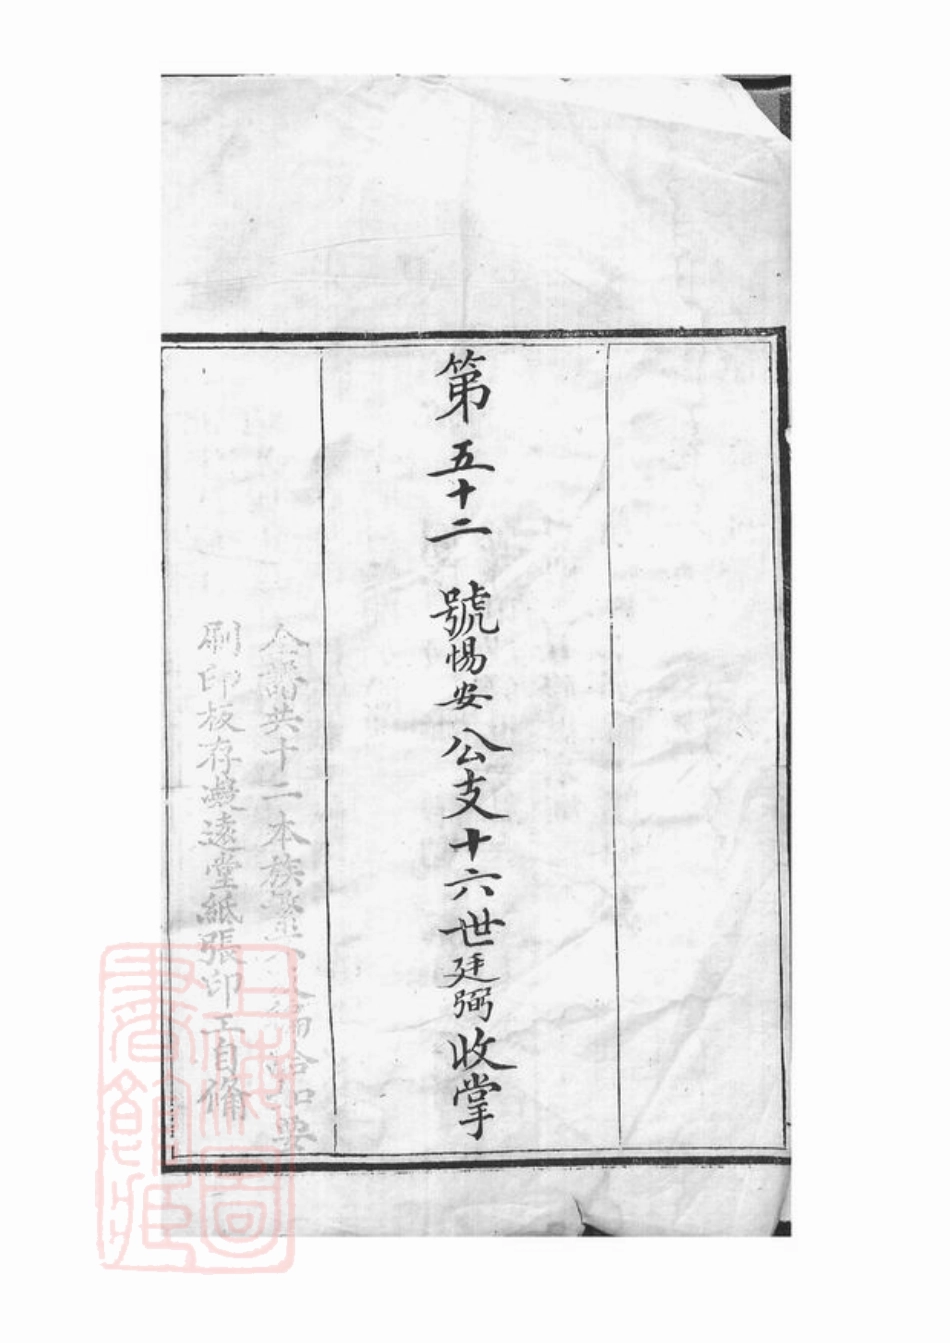 第五十二號惕安公支十六世廷弼收掌
全譜共十二本族繁不 徧給如要
刷印板存凝遠堂紙張印工自備
上海圖書館藏